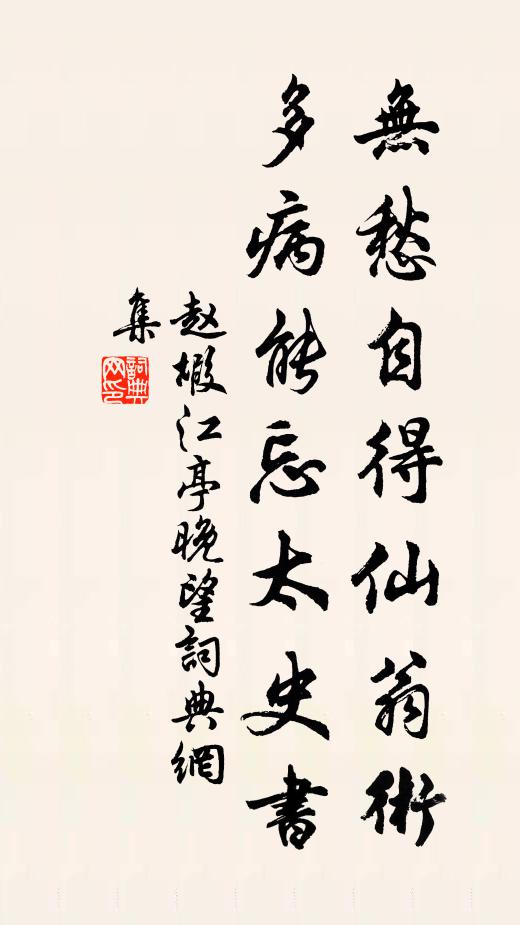 無愁自得仙翁術
多病能忘太史書
赵嘏江亭晚望詞典網
集
詞典
网印